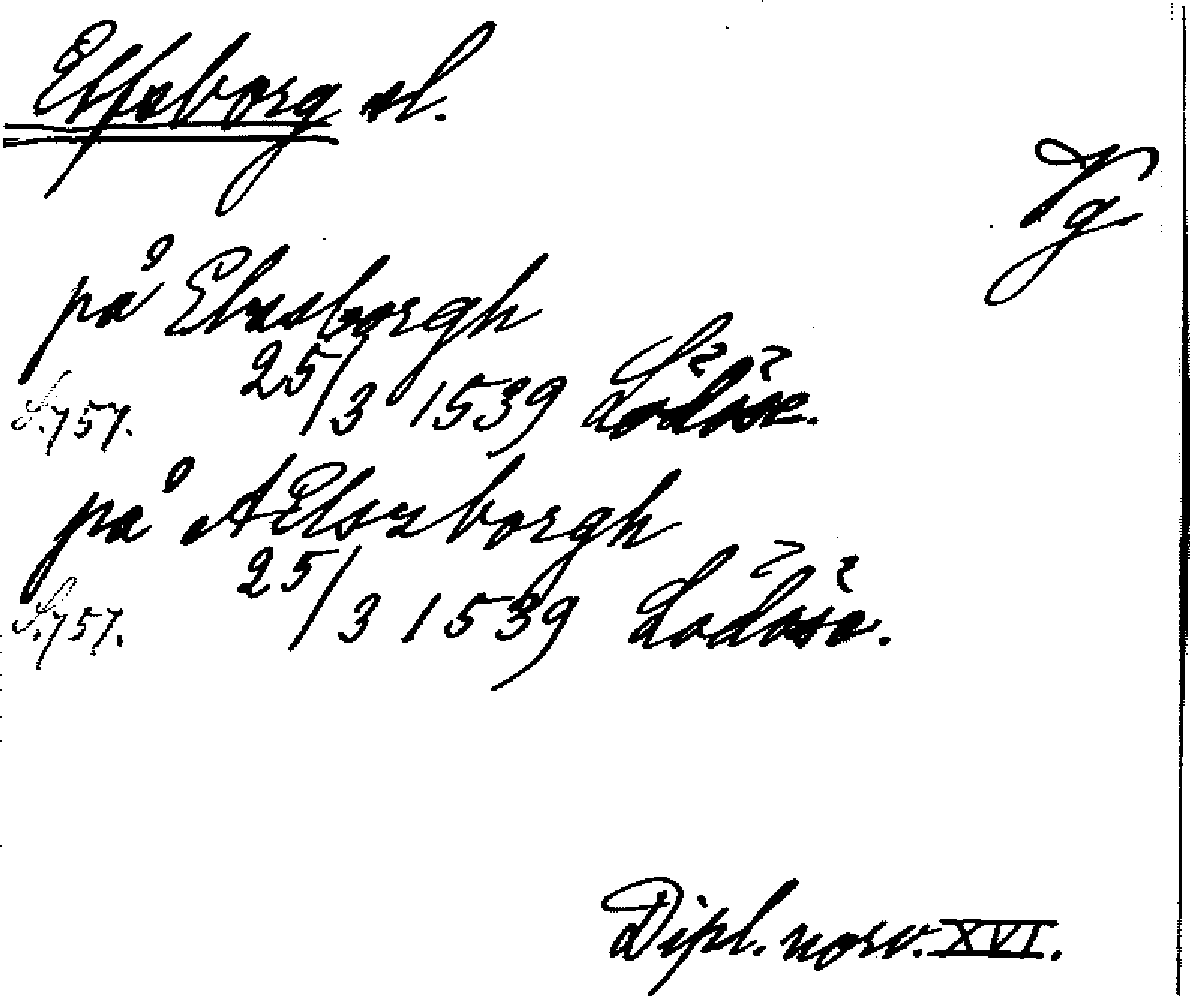 Elfsborg sl.
Vg
på Elvsborgh
S. 757. 25/3 1539 Lödöse.
på AElszborgh
S. 757. 25/3 1539 Lödöse.
Dipl. norv. XVI.